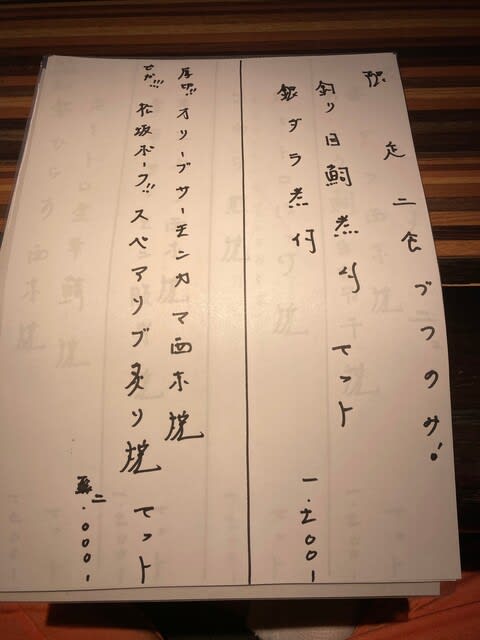 限定 二食づつのみ!
釣り目鯛煮付 セット
銀ダラ煮付
一.五００ー
厚切!! オリーブサーモンカマ西京焼
でか!!! 松坂ポーク!! スペアリブ炙り焼 セット
二.０００ー